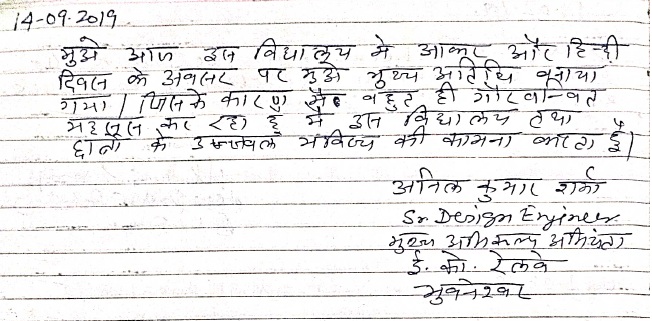 14-09-2019
मुझे आज इस विद्यालय मे आकर और हिन्दी
दिवस के अवसर पर मुझे मुख्य अतिथि बनाया
गया । जिसके कारण मैं बहुत ही गौरवान्वित
महसूस कर रहा हूं मै इस विद्यालय तथा
छात्रो के उज्जवल भविष्य की कामना करता हूँ।
अनिल कुमार शर्मा
Sr Design Engineer
मुख्य अभिकल्प अभियंता
ई. को. रेलवे
भुवनेश्वर